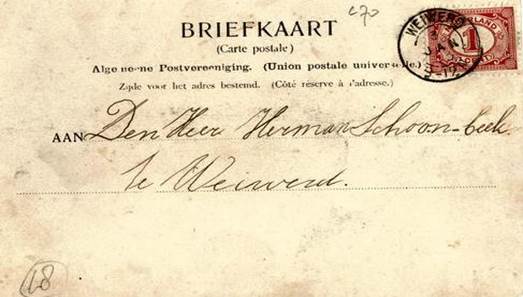 c70
BRIEFKAART
(Carte postale)
Algemeene Postvereeniging. (Union postale universelle.)
Zijde voor het adres bestemd. (Côté réservé à l'adresse.)
AAN Den Heer Herman Schoon-beek
te Weiwerd.
WEIWERD
NEDERLAND
1
JAN
48